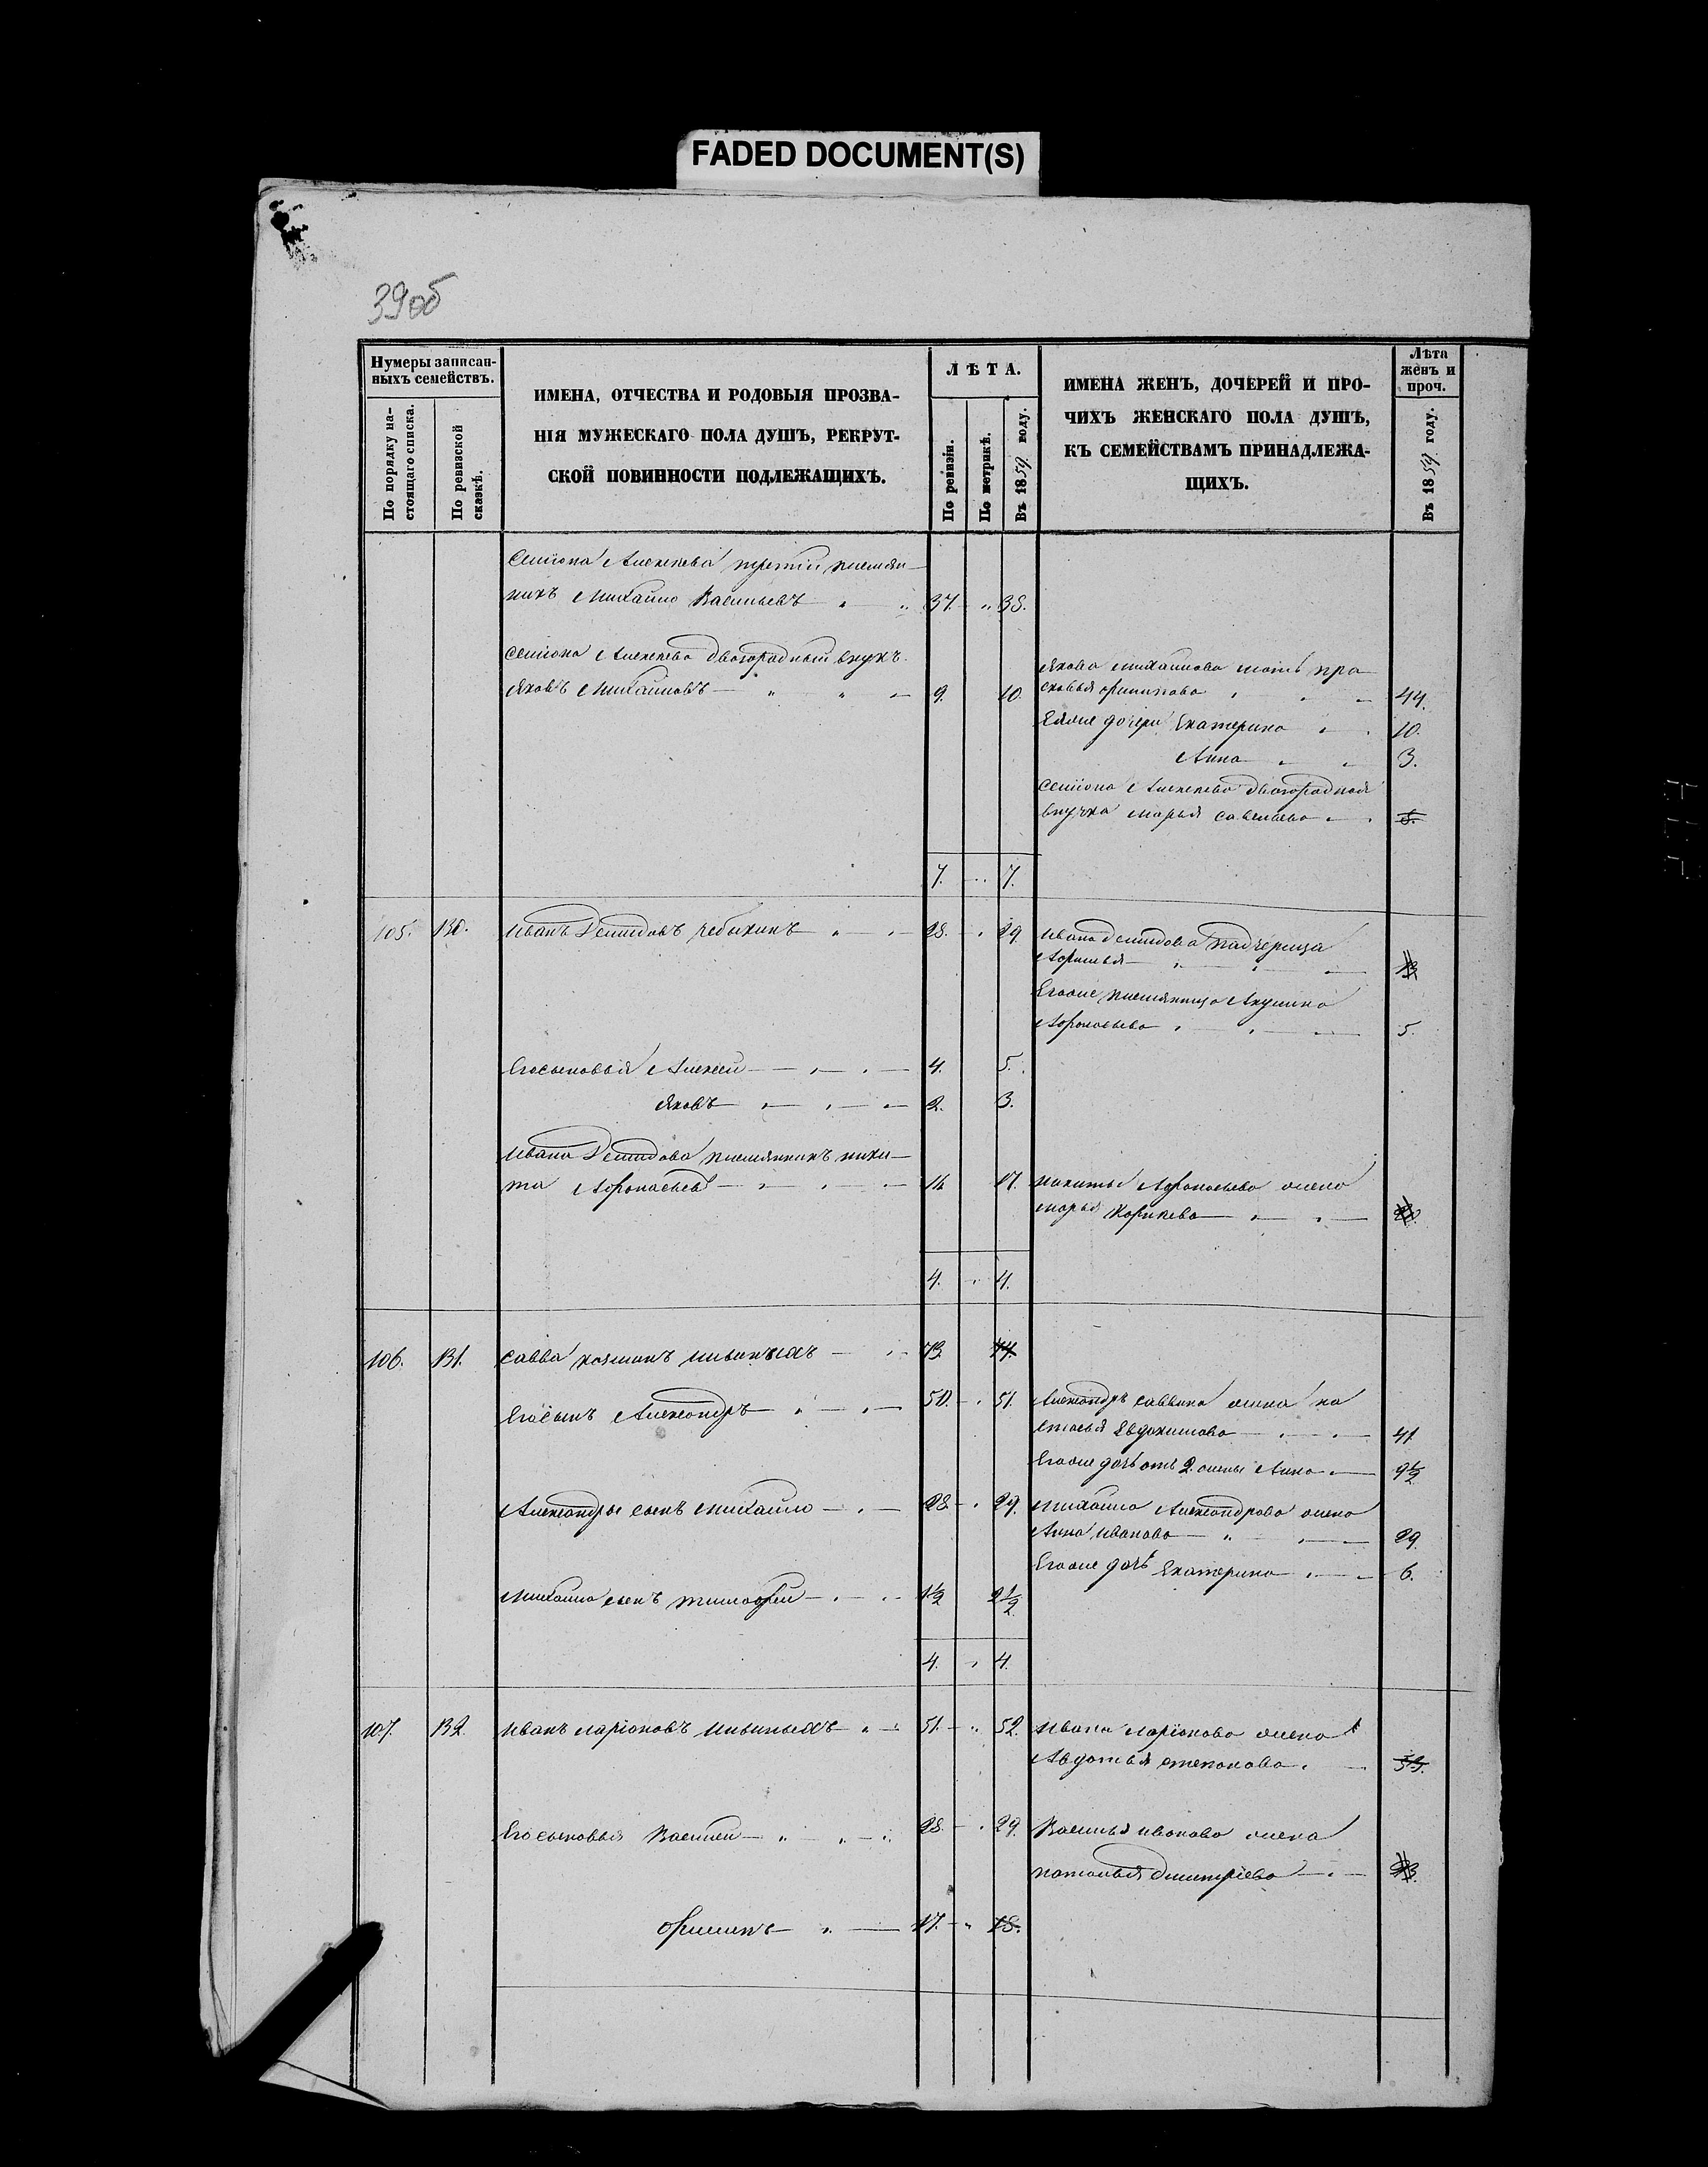 FADED DOCUMENT(S)
39об
Нумеры записан-
ныхъ семействъ.
По порядку на-
стоящаго списка.
По ревизской
сказкѣ.
ИМЕНА, ОТЧЕСТВА И РОДОВЫЯ ПРОЗВА-
НІЯ МУЖЕСКАГО ПОЛА ДУШЪ, РЕКРУТ-
СКОЙ ПОВИННОСТИ ПОДЛЕЖАЩИХЪ.
ЛѢТА.
По ревизіи.
По метрикѣ.
Въ 1859 году.
ИМЕНА ЖЕНЪ, ДОЧЕРЕЙ И ПРО-
ЧИХЪ ЖЕНСКАГО ПОЛА ДУШЪ,
КЪ СЕМЕЙСТВАМЪ ПРИНАДЛЕЖА-
ЩИХЪ.
Лѣта
женъ и
проч.
Въ 1859 году.
Семіона Алексѣева третій племян-
никъ Михайло Васильевъ 37. 38.
Семіона Алексѣева двоюродный внукъ
Яковъ Михайловъ 9. 10.
Якова Михайлова мать Пра
сковья Филипова 44.
Еяже дочери Екатерина 10.
Анна 3.
Семіона Алексѣева двоюродная
внучка Марья Савельева 8.
7. 7.
105. 130. Иванъ Демидовъ Чебыкинъ 28. 29.
Ивана Демидова падчерица
Афимья
Егоже племянница Акулина
Афонасьева 5.
Его сыновья Алексей 4. 5.
Яковъ 2. 3.
Ивана Демидова племянникъ Ники-
та Афонасьевъ 16 17.
Никиты Афонасьева жена
Марья
4. 4.
106. 131. Савва Козминъ 73. 74.
Его сынъ Александръ 50. 51.
Александръ Саввина жена На
стасья Евдокимова 41
Егоже дочь отъ 2. жены Анна 9½
Александры сынъ Михайло 28 29.
Михайла Александрова жена
Анна Иванова 29.
Егоже дочь Екатерина 6.
Михайла сынъ Тимофей 1½ 2½
4. 4.
107. 132. Иванъ Ларіоновъ 51. 52.
Ивана Ларіонова жена
Авдотья Степанова 53.
Его сыновья Василій 28. 29.
Василья Иванова жена
Наталья Дмитріева
Филипъ 17. 18.